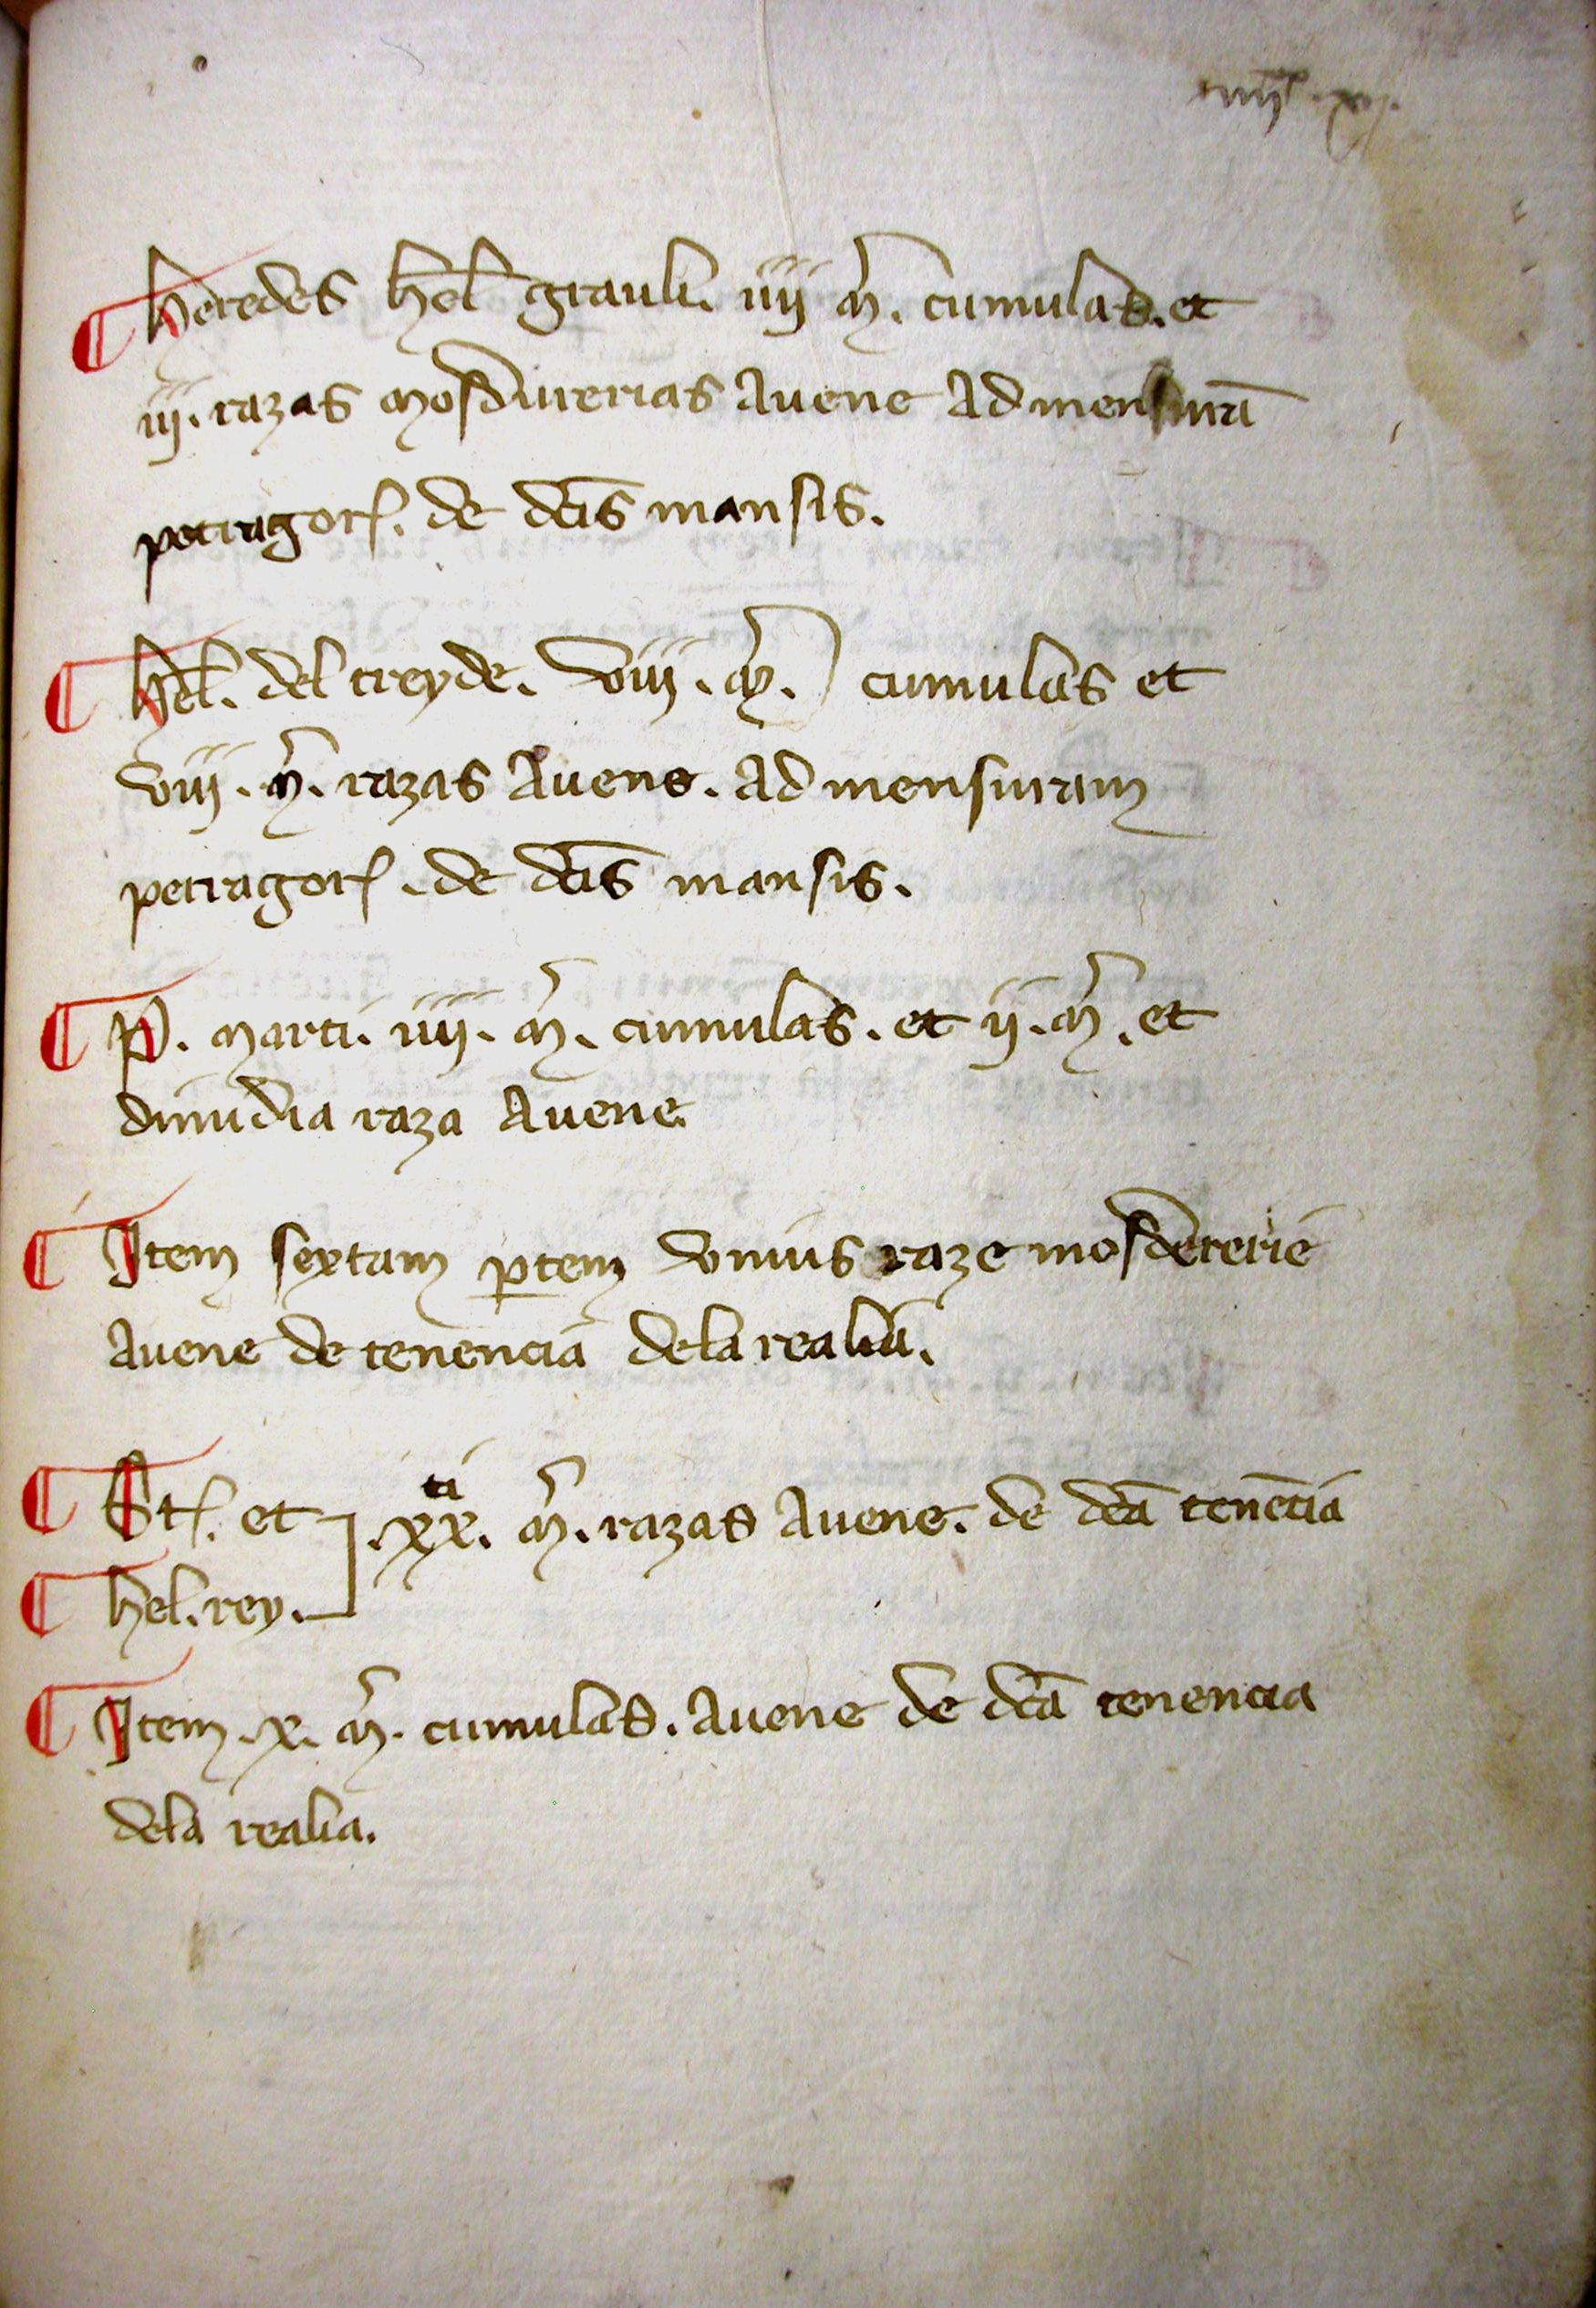 ¶ heredes hel̄ grauli. iiij m̄. cumulas. et
iij. razas mosdurerias auene ad mensurā
petragor̄. de dcīs mansis.
¶ hel̄. del treyde. viij. m̄. cumulas et
viij. m̄. razas auene. ad mensuram
petragor̄. de dcīs mansis.
¶ P. marti. iiij. m̄. cumulas. et ij. m̄. et
dimidia raza auene.
¶ Item sextam ꝑtem unius raze mosdererie
auene de tenencia dela realia.
¶ St̄. et .xx.ti m̄. razas auene. de dcā tenēcia
¶ hel. rey.
¶ Item .x. m̄. cumulas. auene de dcā tenencia
dela realia.